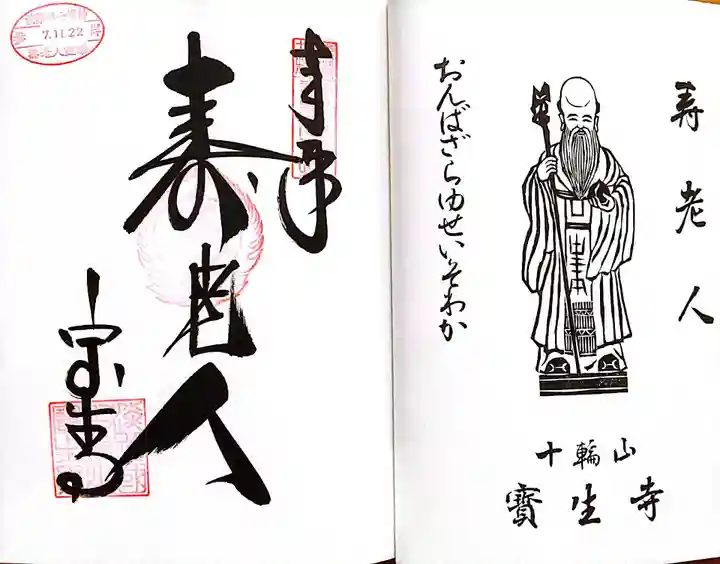 寿老人
おんばざらゆせいそわか
十輪山
寳生寺
奉拝
寿老人
宝生寺
7.11.22